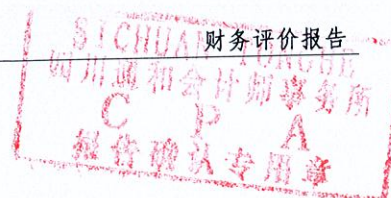 财务评价报告
SICHUAN TONGHE
四川同和会计师事务所
CPA
报告确认专用章